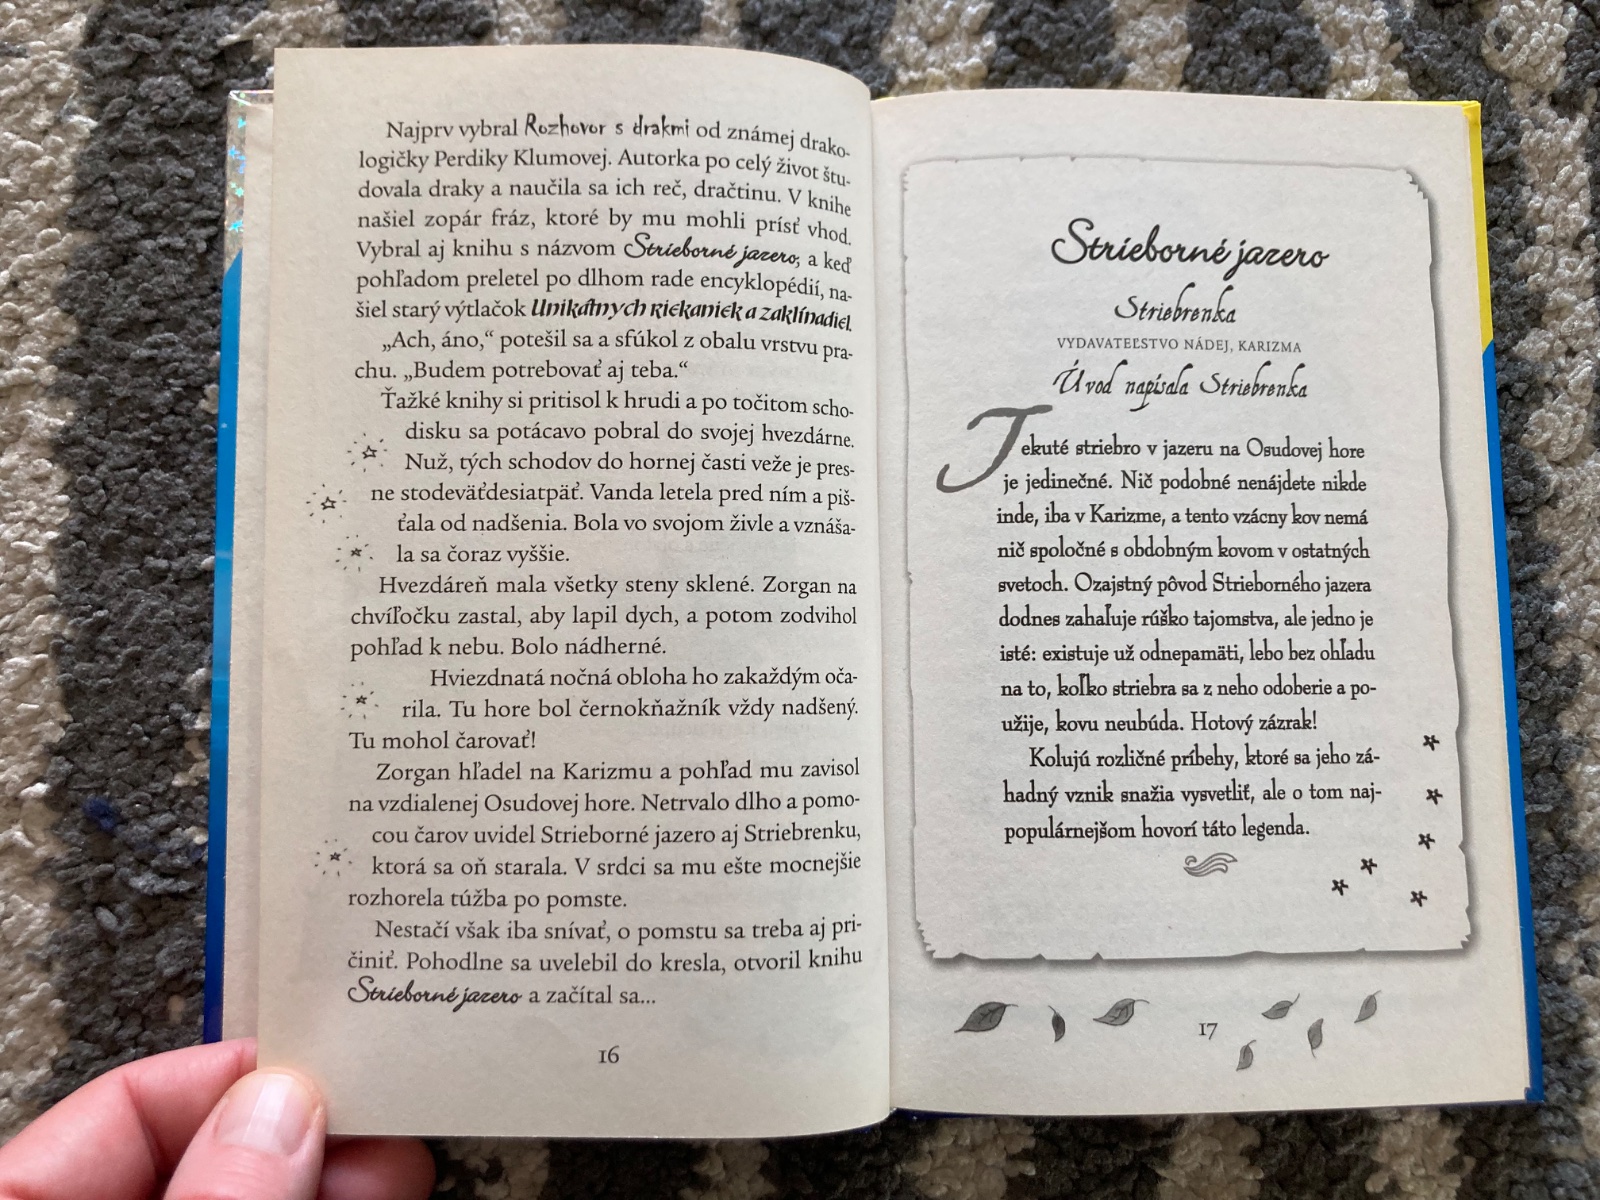 Najprv vybral Rozhovor s drakmi od známej drako-
logičky Perdiky Klumovej. Autorka po celý život štu-
dovala draky a naučila sa ich reč, dračtinu. V knihe
našiel zopár fráz, ktoré by mu mohli prísť vhod.
Vybral aj knihu s názvom Strieborné jazero, a keď
pohľadom preletel po dlhom rade encyklopédií, na-
šiel starý výtlačok Unikátnych riekaniek a zaklínadiel.
„Ach, áno,“ potešil sa a sfúkol z obalu vrstvu pra-
chu. „Budem potrebovať aj teba.“
Ťažké knihy si pritisol k hrudi a po točitom scho-
disku sa potácavo pobral do svojej hvezdárne.
Nuž, tých schodov do hornej časti veže je pres-
ne stodeväťdesiatpäť. Vanda letela pred ním a piš-
ťala od nadšenia. Bola vo svojom živle a vznáša-
la sa čoraz vyššie.
Hvezdáreň mala všetky steny sklené. Zorgan na
chvíľočku zastal, aby lapil dych, a potom zodvihol
pohľad k nebu. Bolo nádherné.
Hviezdnatá nočná obloha ho zakaždým oča-
rila. Tu hore bol černokňažník vždy nadšený.
Tu mohol čarovať!
Zorgan hľadel na Karizmu a pohľad mu zavisol
na vzdialenej Osudovej hore. Netrvalo dlho a pomo-
cou čarov uvidel Strieborné jazero aj Striebrenku,
ktorá sa oň starala. V srdci sa mu ešte mocnejšie
rozhorela túžba po pomste.
Nestačí však iba snívať, o pomstu sa treba aj pri-
činiť. Pohodlne sa uvelebil do kresla, otvoril knihu
Strieborné jazero a začítal sa...
16
Strieborné jazero
Striebrenka
VYDAVATEĽSTVO NÁDEJ, KARIZMA
Úvod napísala Striebrenka
Tekuté striebro v jazeru na Osudovej hore
je jedinečné. Nič podobné nenájdete nikde
inde, iba v Karizme, a tento vzácny kov nemá
nič spoločné s obdobným kovom v ostatných
svetoch. Ozajstný pôvod Strieborného jazera
dodnes zahaľuje rúško tajomstva, ale jedno je
isté: existuje už odnepamäti, lebo bez ohľadu
na to, koľko striebra sa z neho odoberie a po-
užije, kovu neubúda. Hotový zázrak!
Kolujú rozličné príbehy, ktoré sa jeho zá-
hadný vznik snažia vysvetliť, ale o tom naj-
populárnejšom hovorí táto legenda.
17